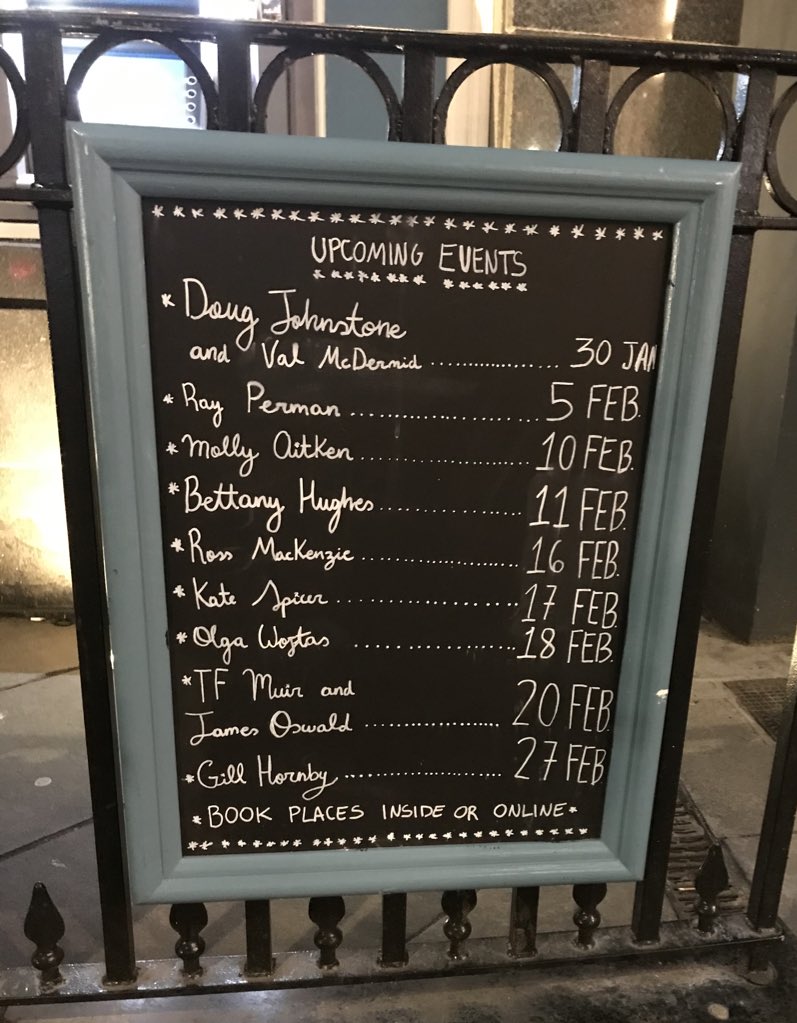 UPCOMING EVENTS
* Doug Johnstone
and Val McDermid .................. 30 JAN
* Ray Perman ........................ 5 FEB.
* Molly Aitken ....................... 10 FEB.
* Bettany Hughes .................... 11 FEB.
* Ross MacKenzie .................... 16 FEB.
* Kate Spicer ....................... 17 FEB.
* Olga Wojtas ....................... 18 FEB.
* TF Muir and
James Oswald ................... 20 FEB.
* Gill Hornby ..................... 27 FEB
* BOOK PLACES INSIDE OR ONLINE *